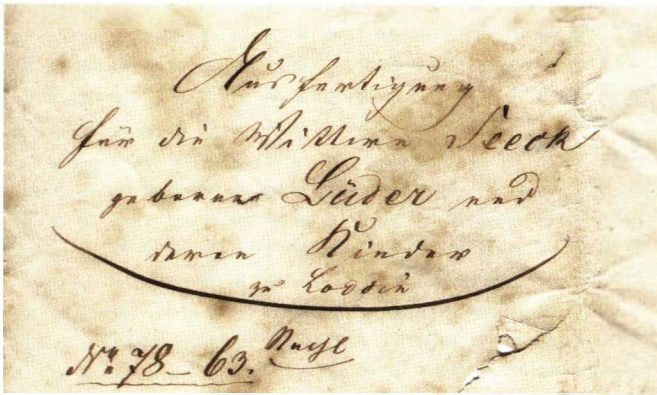 Ausfertigung
für die Wittwe Seeck
geborene Lüder und
deren Kinder
zu Loddin
No. 78 - 63. Nachl